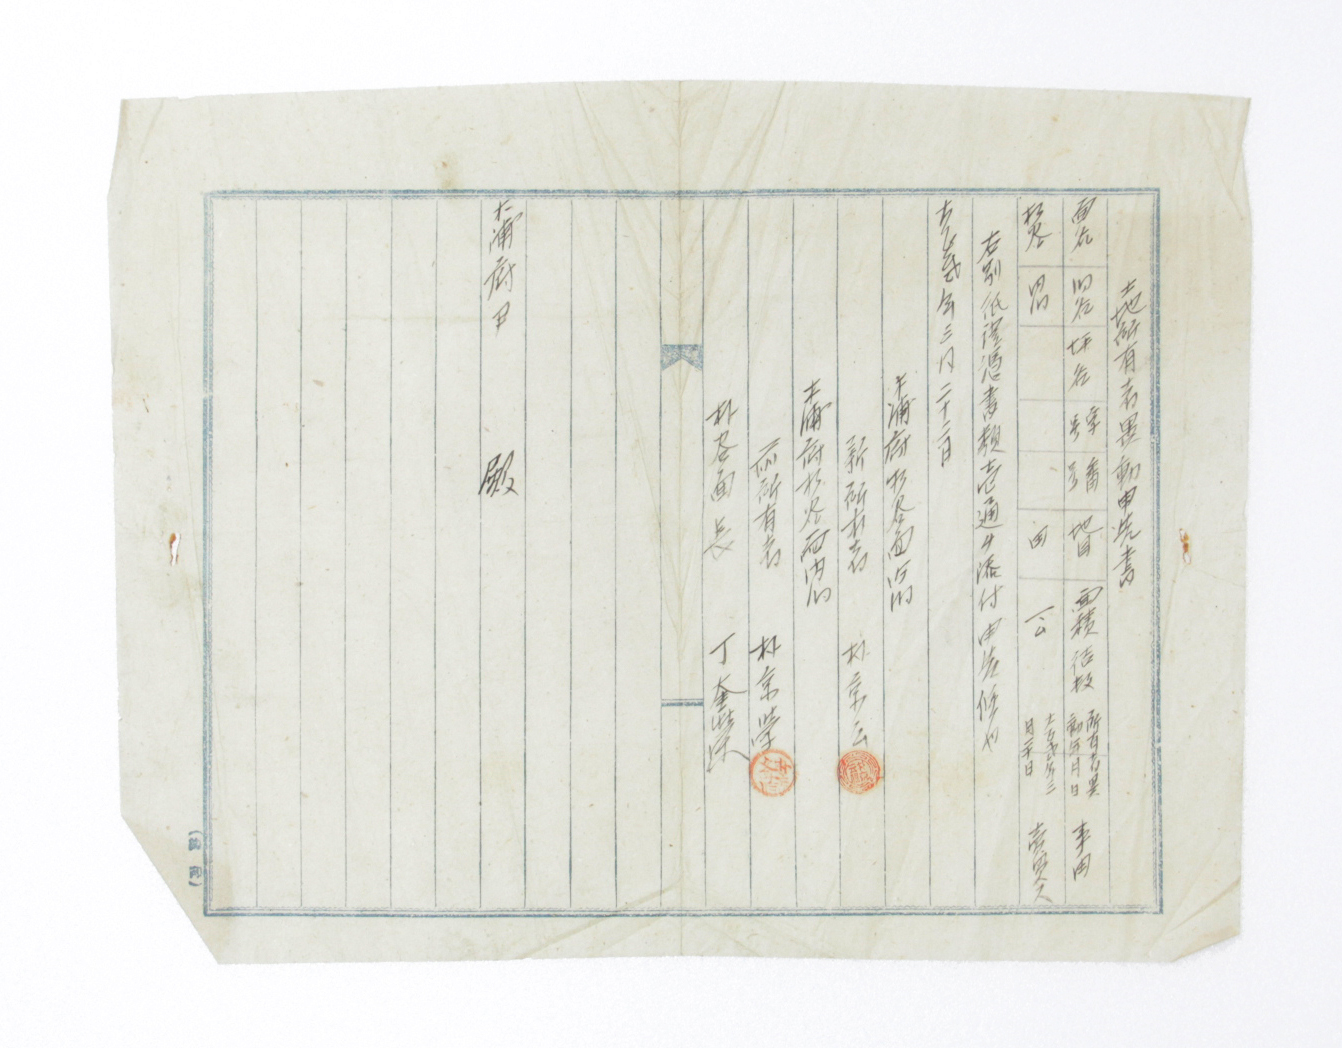 土地所有者異動申先書
面名 洞名 坪名 字号 番号 地目 面積 結数 所有者異動年月日 事由
朴谷 田 大正弐年三月二十日 売買
右別紙證憑書類壱通ヲ添付申先候也
大正弐年三月二十二日
木浦府朴谷面
新所有者 朴京云
木浦府朴谷面内洞
所有者 朴京学
朴谷面長 丁奎榮
木浦府尹 殿